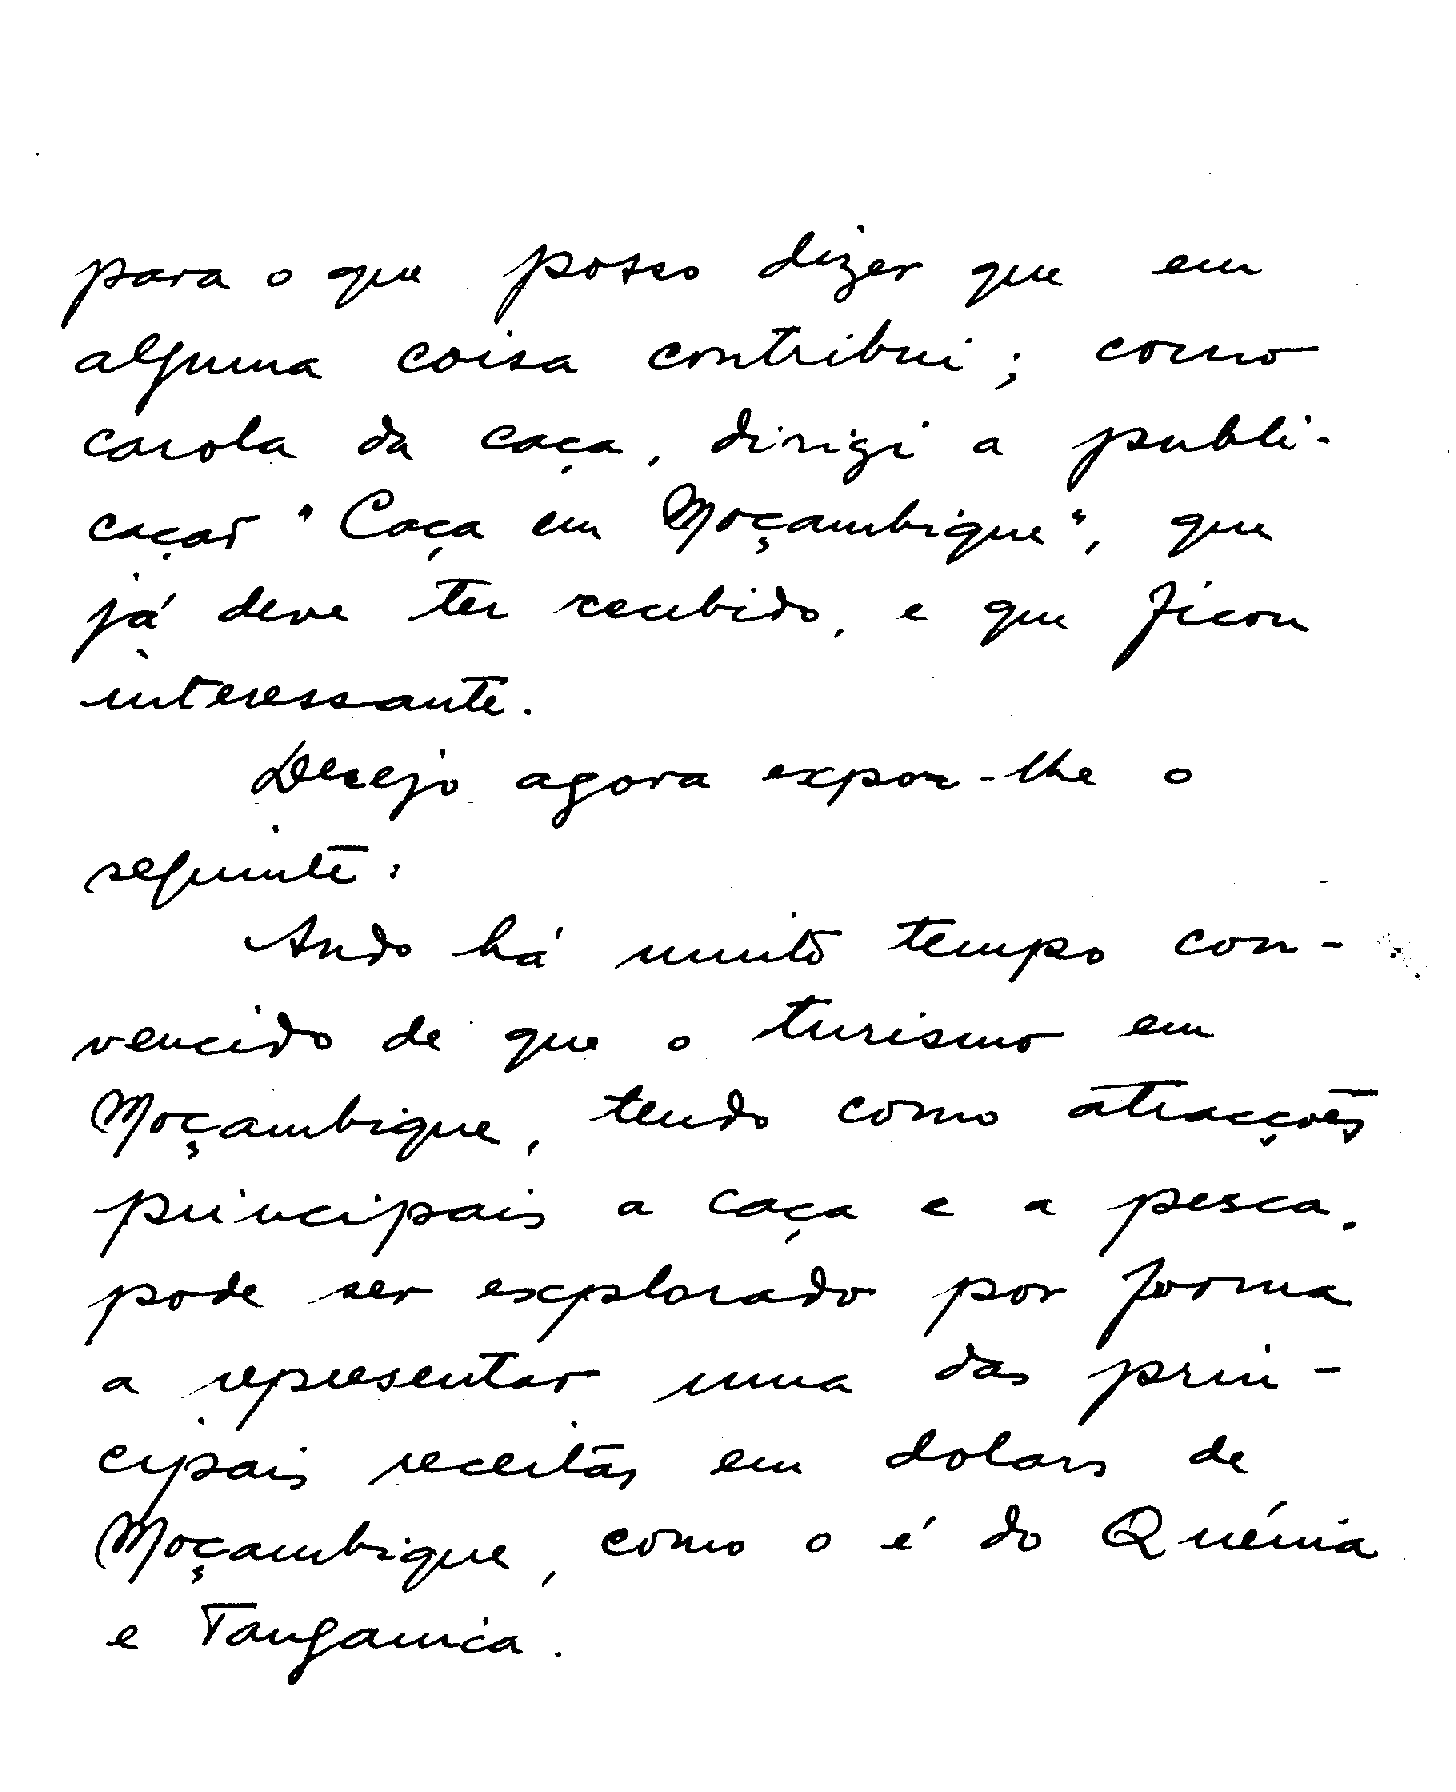 para o que posso dizer que em
alguma coisa contribui; como
carola da caça, dirigi a publi-
cação "Caça em Moçambique", que
já deve ter recebido, e que ficou
interessante.
Desejo agora expor-lhe o
seguinte:
Ando há muito tempo con-
vencido de que o turismo em
Moçambique, tendo como atracções
principais a caça e a pesca,
pode ser explorado por forma
a representar uma das prin-
cipais receitas em dolars de
Moçambique, como o é do Quénia
e Tanganica.